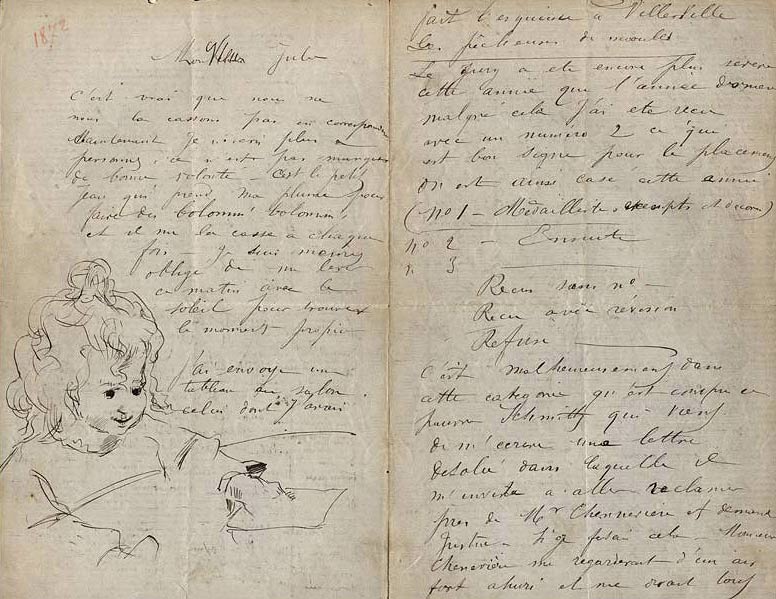 1872
Mon Jules
c'est vrai que nous ne
nous la cassons pas en correspondance
maintenant je n'ecris plus a
personne, ce n'est pas manque
de bonne volonté - c'est le petit
Jean qui prend ma plume pour
faire des bolommi bolommi
et il me la casse à chaque
fois Je suis
obligé de me lever
ce matin avec le
soleil pour trouver
le moment propice
J'ai envoyé un
tableau au salon
celui dont j'avais
fait l'esquisse a Villerville
Les pêcheuses de moules
Le Jury a ete encore plus severe
cette année que l'année derniere
malgré cela j'ai ete recu
avec un numero 2 ce qui
est bon signe pour le placement
on est ainsi casé cette année
(no 1 - Médailles exempts
no 2 - Ensuite
n. 3
Recus sans no -
Recu avec révision
Refusé
C'est malheureusement dans
cette categorie qu'est compris ce
pauvre Schmitt qui vient
de m'ecrire une lettre
desolée dans laquelle il
m'invite a aller reclamer
pres de Mr Chennevière et demand
Justice - Si je ferais cela - Monsieur
Chenevière me regarderait d'un air
fort ahuri et me dirait